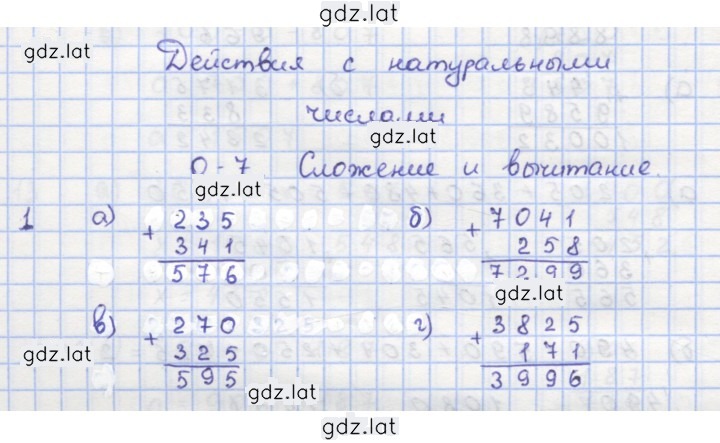 gdz.lat
gdz.lat
Действия с натуральными
числами
gdz.lat
О-7 Сложение и вычитание.
gdz.lat
1 а) + 235
341
576
б) + 7041
258
7299
gdz.lat
в) + 270
325
595
г) + 3825
171
3996
gdz.lat
gdz.lat
gdz.lat